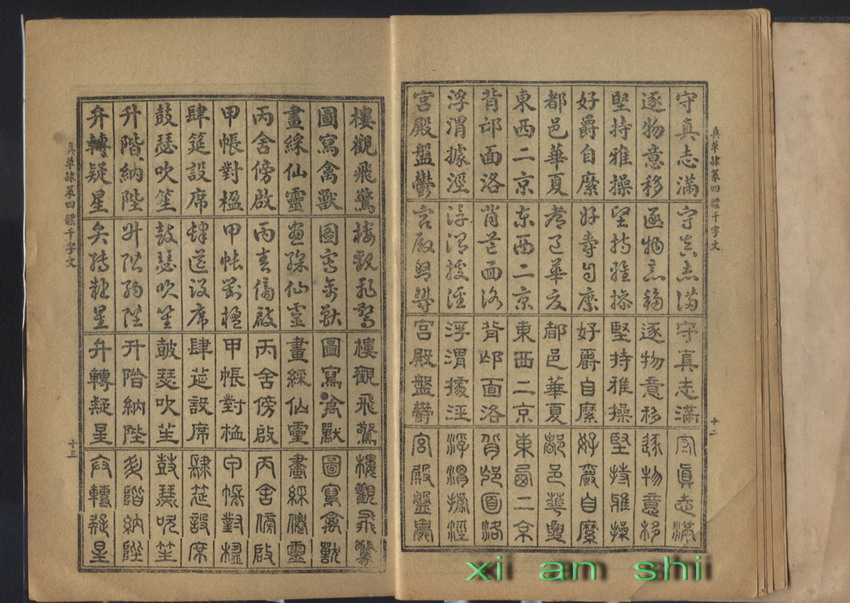 真草隸篆四體千字文 十二
守真志滿 守真志滿 守真志滿 守真志滿
逐物意移 逐物意移 逐物意移 逐物意移
堅持雅操 堅持雅操 堅持雅操 堅持雅操
好爵自縻 好爵自縻 好爵自縻 好爵自縻
都邑華夏 都邑華夏 都邑華夏 都邑華夏
東西二京 東西二京 東西二京 東西二京
背邙面洛 背邙面洛 背邙面洛 背邙面洛
浮渭據涇 浮渭據涇 浮渭據涇 浮渭據涇
宮殿盤鬱 宮殿盤鬱 宮殿盤鬱 宮殿盤鬱
樓觀飛驚 樓觀飛驚 樓觀飛驚 樓觀飛驚
圖寫禽獸 圖寫禽獸 圖寫禽獸 圖寫禽獸
畫綵仙靈 畫綵仙靈 畫綵仙靈 畫綵仙靈
丙舍傍啟 丙舍傍啟 丙舍傍啟 丙舍傍啟
甲帳對楹 甲帳對楹 甲帳對楹 甲帳對楹
肆筵設席 肆筵設席 肆筵設席 肆筵設席
鼓瑟吹笙 鼓瑟吹笙 鼓瑟吹笙 鼓瑟吹笙
升階納陛 升階納陛 升階納陛 升階納陛
弁轉疑星 弁轉疑星 弁轉疑星 弁轉疑星
真草隸篆四體千字文 十三
xi an shi